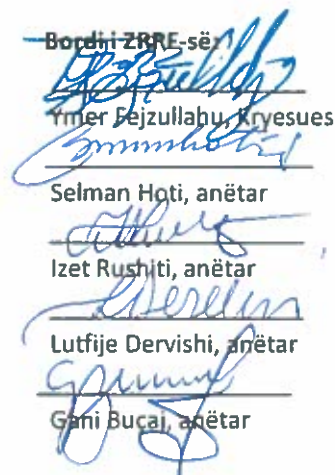 Bordi i ZRRE-së:
Ymer Fejzullahu, Kryesues
Selman Hoti, anëtar
Izet Rushiti, anëtar
Lutfije Dervishi, anëtar
Gani Buçaj, anëtar